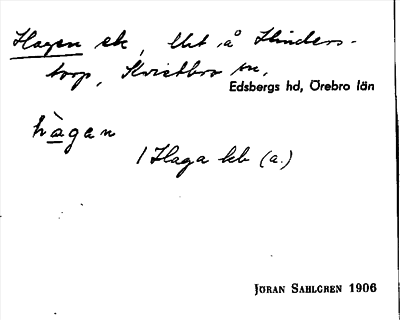 Hagen stk, tht å Hinders-
torp, Kvistbro sn,
Edsbergs hd, Örebro län
hàgan
1 Haga hb (a.)
JÖRAN SAHLGREN 1906